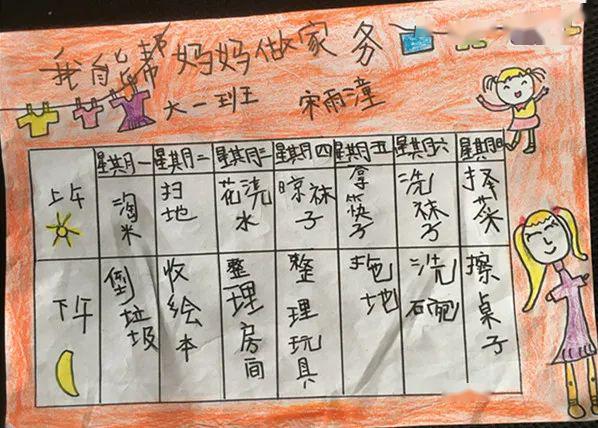 我自能帮妈妈做家务
大一班 宋雨潼
星期一 星期二 星期三 星期四 星期五 星期六 星期日
上午 淘米 扫地 花浇水 晾袜子 拿筷子 洗袜子 择菜
下午 倒垃圾 收绘本 整理房间 整理玩具 拖地 洗碗 擦桌子